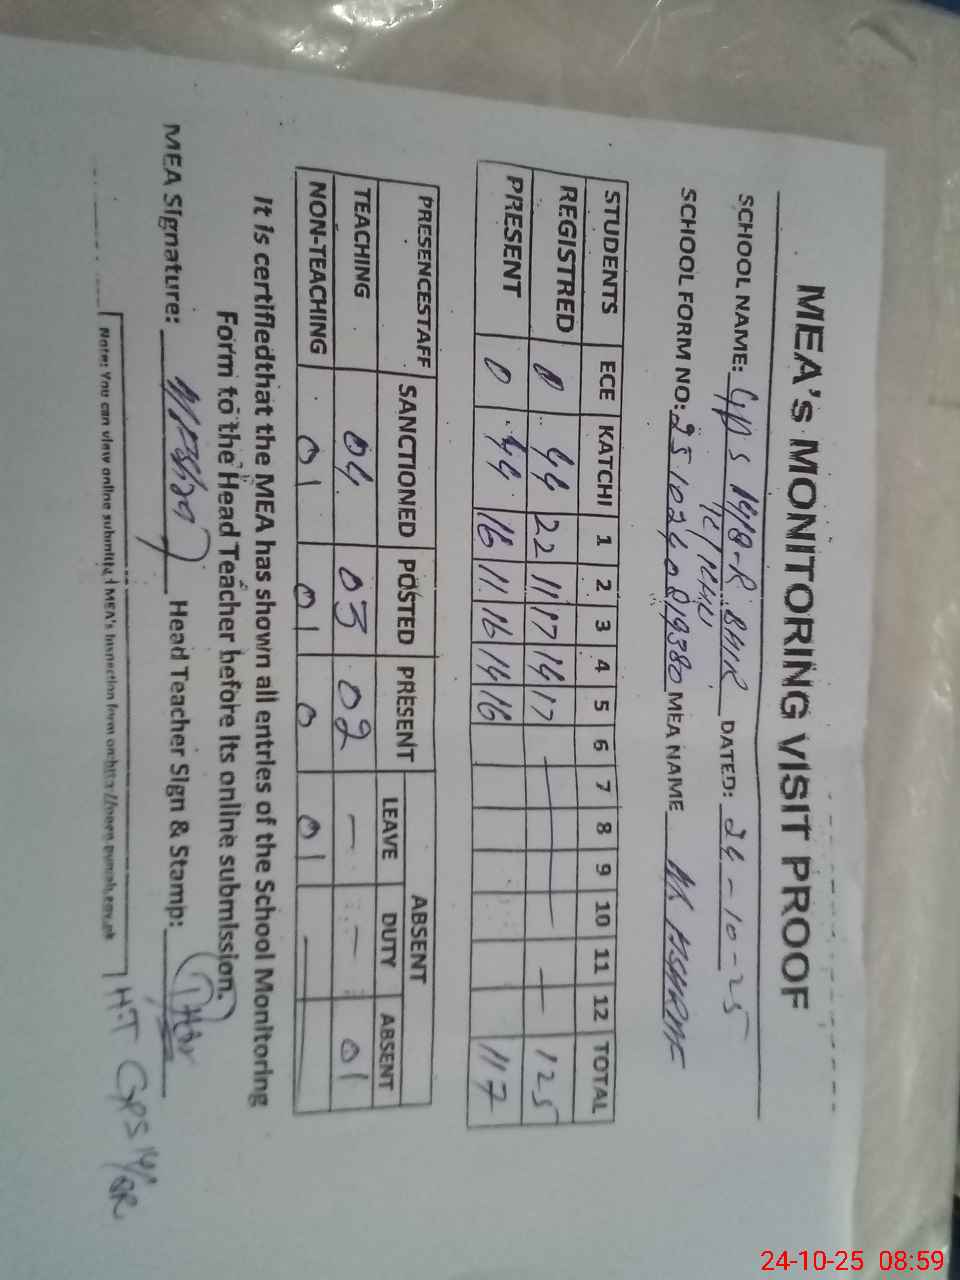 MEA's MONITORING VISIT PROOF
SCHOOL NAME: GPS 14/8-R DATED: 24-10-25
SCHOOL FORM NO: MEA NAME
STUDENTS ECE KATCHI 1 2 3 4 5 6 7 8 9 10 11 12 TOTAL
REGISTRED 0 44 22 11 17 14 17 — — 125
PRESENT 0 44 16 11 16 14 16 117
PRESENCESTAFF SANCTIONED POSTED PRESENT ABSENT
LEAVE DUTY ABSENT
TEACHING 04 03 02 — — 01
NON-TEACHING 01 01 0 01 —
It is certifiedthat the MEA has shown all entries of the School Monitoring
Form to the Head Teacher before its online submission.
MEA Signature: Head Teacher Sign & Stamp:
H.T GPS 14/8R
Note: You can view online submitted MEA's Inspection form on
24-10-25 08:59